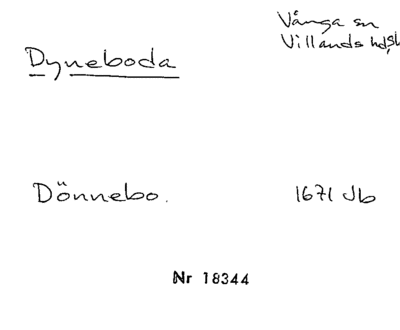 Vånga sn
Villands hd, Sk
Dyneboda
Dönnebo.
1671 Jb
Nr 18344